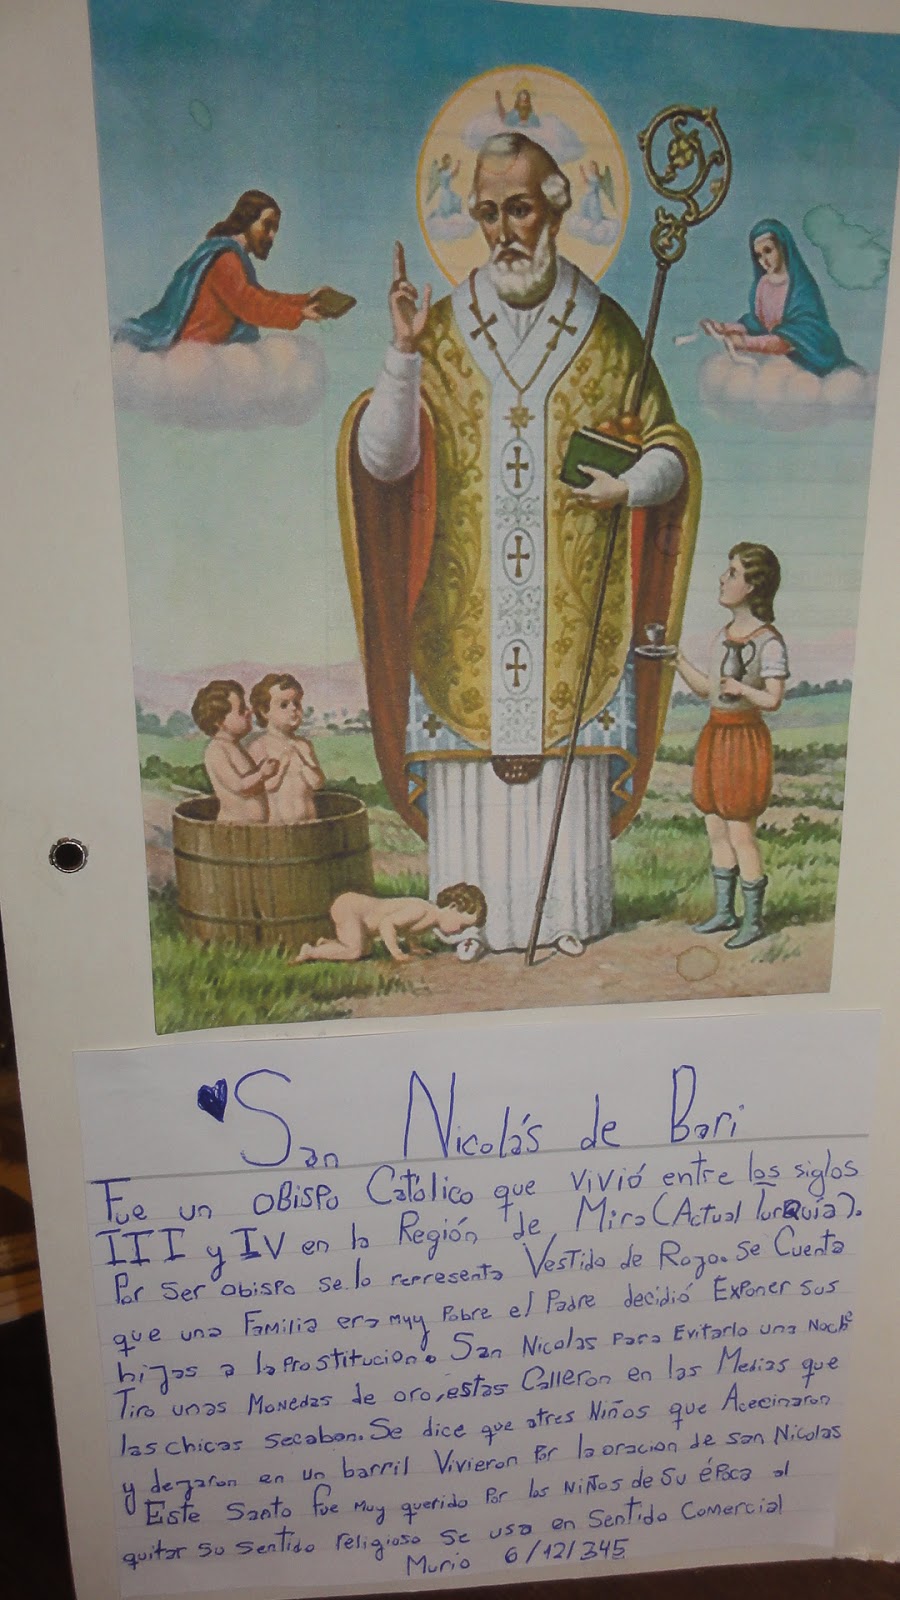 San Nicolás de Bari
Fue un OBISPO Católico que vivió entre los siglos
III y IV en la Región de Mira (Actual TurQuía).
Por ser obispo se lo representa Vestido de Rogo. Se Cuenta
que una Familia era muy Pobre el Padre decidió Exponer sus
hijas a la Prostitucion. San Nicolas para Evitarlo una Noche
Tiro unas Monedas de oro, estas Calleron en las Medias que
las chicas secaban. Se dice que atres Niños que Acecinaron
y degaron en un barril Vivieron Por la oracion de san Nicolas
Este Santo fue muy querido Por los NiÑos de Su éPoca al
quitar su sentido religioso se usa en Sentido Comercial
Murio 6/12/345